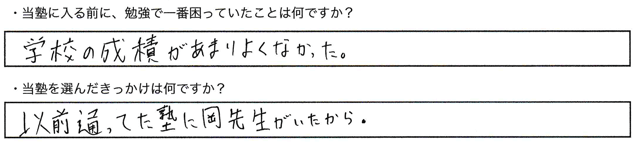 ・当塾に入る前に、勉強で一番困っていたことは何ですか？
学校の成積があまりよくなかった。
・当塾を選んだきっかけは何ですか？
以前通ってた塾に岡先生がいたから。